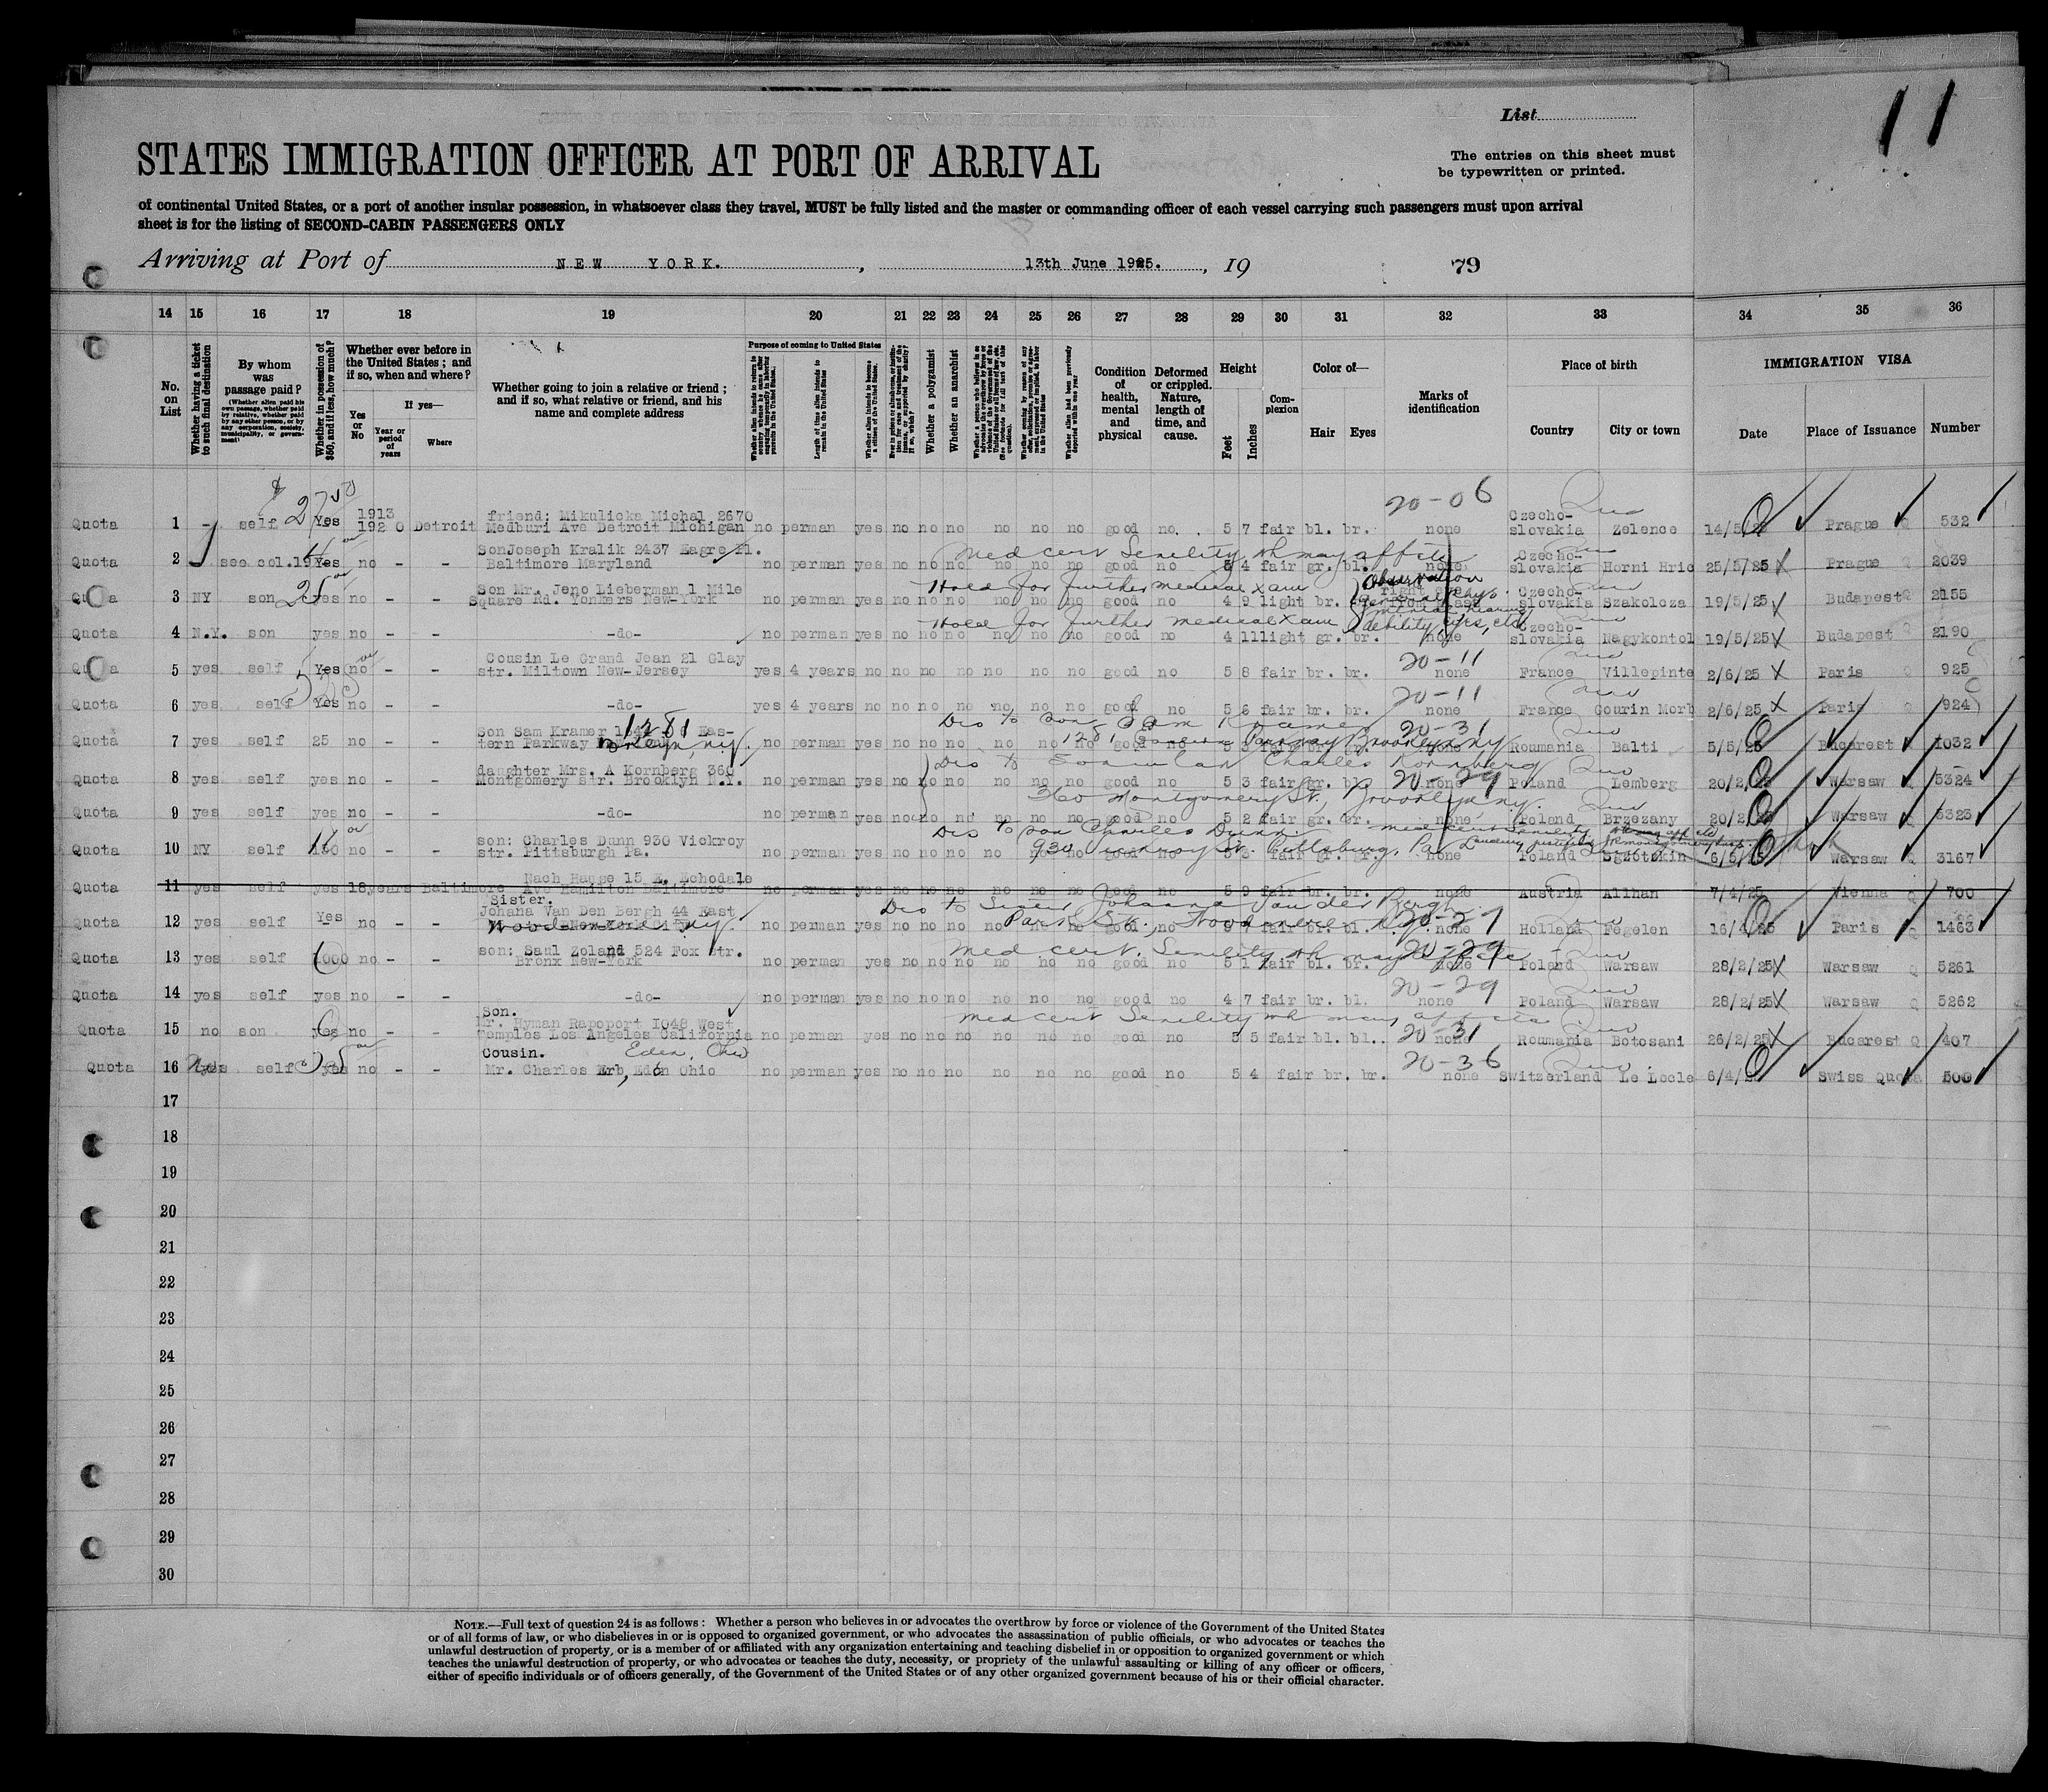 11
List
STATES IMMIGRATION OFFICER AT PORT OF ARRIVAL
The entries on this sheet must
be typewritten or printed.
of continental United States, or a port of another insular possession, in whatsoever class they travel, MUST be fully listed and the master or commanding officer of each vessel carrying such passengers must upon arrival
sheet is for the listing of SECOND-CABIN PASSENGERS ONLY
Arriving at Port of NEW YORK. , 13th June 1925. , 19 79
14 15 16 17 18 19 20 21 22 23 24 25 26 27 28 29 30 31 32 33 34 35 36
No. on List
Whether having a ticket to such final destination
By whom was passage paid?
(Whether alien paid his own passage, whether paid by relative, whether paid by any other person, or by any corporation, society, municipality, or government)
Whether in possession of $50, and if less, how much?
Whether ever before in the United States; and if so, when and where?
Yes or No
If yes—
Year or period of years
Where
Whether going to join a relative or friend; and if so, what relative or friend, and his name and complete address
Purpose of coming to United States
Length of time alien intends to remain in the United States
Whether alien intends to become a citizen of the United States.
Whether a polygamist
Whether an anarchist
Condition of health, mental and physical
Deformed or crippled. Nature, length of time, and cause.
Height
Feet Inches
Complexion
Color of—
Hair Eyes
Marks of identification
Place of birth
Country City or town
IMMIGRATION VISA
Date Place of Issuance Number
20-06
Quota 1 - self Yes 1913 1920 Detroit friend: Mikulicka Michal 2670
Medburi Ave Detroit Michigan no perman yes no no no no no no good no. 5 7 fair bl. br. none Czecho-slovakia Zelence 14/5/25 Prague Q 532
Med cert Senility wh may affct
Quota 2 see col.19 Yes no - - Son Joseph Kralik 2437 Eagre Pl.
Baltimore Maryland no perman yes no no no no no no good no 5 4 fair gr. bl. none Czecho-slovakia Horni Hric 25/5/25 Prague Q 2039
Hold for further medical xam Observation
Quota 3 NY son yes no - - Son Mr. Jeno Lieberman 1 Mile
Square Rd. Yonkers New-York no perman yes no no no no no no good no 4 9 light br. Czecho-slovakia Szakolcza 19/5/25 Budapest Q 2155
Hold for further medical xam debility, eyes, etc
Quota 4 N.Y. son yes no - - -do- no perman yes no no no no no no good no 4 11 light gr. br. none Czecho-slovakia Nagykontol 19/5/25 Budapest Q 2190
20-11
Quota 5 yes self Yes no - - Cousin Le Grand Jean 21 Clay
str. Miltown New-Jersey yes 4 years no no no no no no no good no 5 8 fair br. br. none France Villepinte 2/6/25 Paris Q 925
20-11
Quota 6 yes self Yes no - - -do- yes 4 years no no no no no no no good no 5 6 fair br. br. none France Gourin Morb 2/6/25 Paris Q 924
Dis to son, Sam Kramer 20-31
1281 Eastern Parkway Brooklyn, ny
Quota 7 yes self 25 no - - Son Sam Kramer 1281 Eas-
tern Parkway Brklyn, ny. no perman yes no no no no no no good no Roumania Balti 5/5/25 Bucarest Q 1032
Dis to Son in law Charles Kornberg
20-29
Quota 8 yes self yes no - - daughter Mrs. A Kornberg 360
Montgomery str. Brooklyn N.Y. no perman yes no no no no no no good no 5 3 fair gr. bl. none Poland Lemberg 20/2/25 Warsaw Q 5324
360 Montgomery St, Brooklyn, ny.
Quota 9 yes self yes no - - -do- no perman yes no no no no no no good no 5 2 fair gr. br. none Poland Brzezany 20/2/25 Warsaw Q 5323
Dis to son Charles Dunn. med cert Senility
930 Vickroy St. Pittsburg, Pa
Quota 10 NY self 160 no - - son: Charles Dunn 930 Vickroy
str. Pittsburgh Pa. no perman yes no no no no no no good no fair gr. gr. none Poland 6/5/25 Warsaw Q 3167
Quota 11 yes self yes 18years Baltimore Nach Hauge 15 E. Echodale
Ave Hamilton Baltimore no perman yes no no no no no no good no 5 9 fair br. br. none Austria Allhan 7/4/25 Vienna Q 700
Dis to Sister Johanna Van der Bergh
Park St. 20-27
Quota 12 yes self Yes no - - Sister.
Johana Van Den Bergh 44 East
no perman yes no no no no no no good no fair bl. bl. none Holland Fegelen 16/4/25 Paris Q 1463
med cert. Senility wh may affct 20-29
Quota 13 yes self 1000 no - - son: Saul Zoland 524 Fox str.
Bronx New-York no perman yes no no no no no no good no 5 1 fair bl. br. none Poland Warsaw 28/2/25 Warsaw Q 5261
20-29
Quota 14 yes self yes no - - -do- no perman yes no no no no no no good no 4 7 fair br. bl. none Poland Warsaw 28/2/25 Warsaw Q 5262
med cert Senility wh may affcts
20-31
Quota 15 no son yes no - - Son.
Mr. Hyman Rapoport 1048 West
Temples Los Angeles California no perman yes no no no no no no good no 5 5 fair bl. bl. none Roumania Botosani 26/2/25 Bucarest Q 407
20-36
Quota 16 yes self yes no - - Cousin. Eden, Ohio
Mr. Charles Erb, Eden Ohio no perman yes no no no no no no good no 5 4 fair br. br. none Switzerland Le Locle 6/4/25 Swiss Quota 500
17
18
19
20
21
22
23
24
25
26
27
28
29
30
NOTE.—Full text of question 24 is as follows: Whether a person who believes in or advocates the overthrow by force or violence of the Government of the United States
or of all forms of law, or who disbelieves in or is opposed to organized government, or who advocates the assassination of public officials, or who advocates or teaches the
unlawful destruction of property, or is a member of or affiliated with any organization entertaining and teaching disbelief in or opposition to organized government or which
teaches the unlawful destruction of property, or who advocates or teaches the duty, necessity, or propriety of the unlawful assaulting or killing of any officer or officers,
either of specific individuals or of officers generally, of the Government of the United States or of any other organized government because of his or their official character.